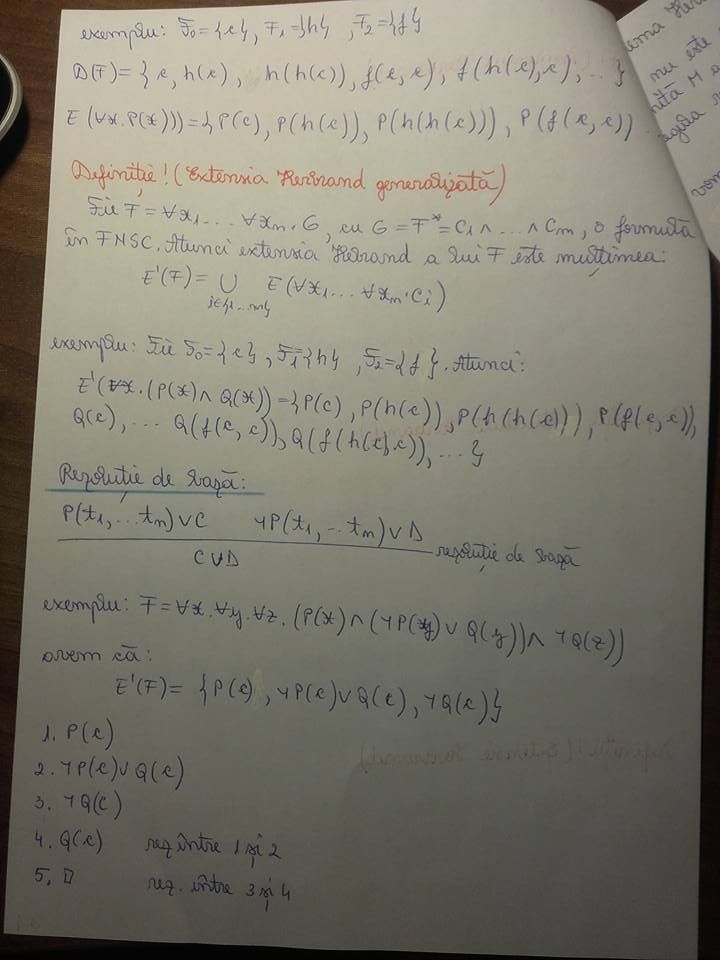 exemplu: F₀={c}, F₁={h}, F₂={f}
D(F)={c, h(c), h(h(c)), f(c,c), f(h(c),c), ...}
E(∀x.P(x)))={P(c), P(h(c)), P(h(h(c))), P(f(c,c)) ...
Definiție! (Extensia Herbrand generalizată)
Fie F=∀x₁...∀xₙ.G, cu G=F*=C₁∧...∧Cₘ, o formulă
în FNSC. Atunci extensia Herbrand a lui F este mulțimea:
E'(F)= ∪ E(∀x₁...∀xₙ.Cᵢ)
i∈{1...m}
exemplu: Fie F₀={c}, F₁={h}, F₂={f}. Atunci:
E'(∀x.(P(x)∧Q(x))={P(c), P(h(c)), P(h(h(c))), P(f(c,c)),
Q(c), ... Q(f(c,c)), Q(f(h(c),c)), ...}
Rezoluție de bază:
P(t₁,...tₙ)∨C ¬P(t₁,...tₙ)∨D
rezoluție de bază
C∨D
exemplu: F=∀x.∀y.∀z.(P(x)∧(¬P(y)∨Q(y))∧¬Q(z))
avem că:
E'(F)= {P(c), ¬P(c)∨Q(c), ¬Q(c)}
1. P(c)
2. ¬P(c)∨Q(c)
3. ¬Q(c)
4. Q(c) rez între 1 și 2
5. □ rez. între 3 și 4
nu este